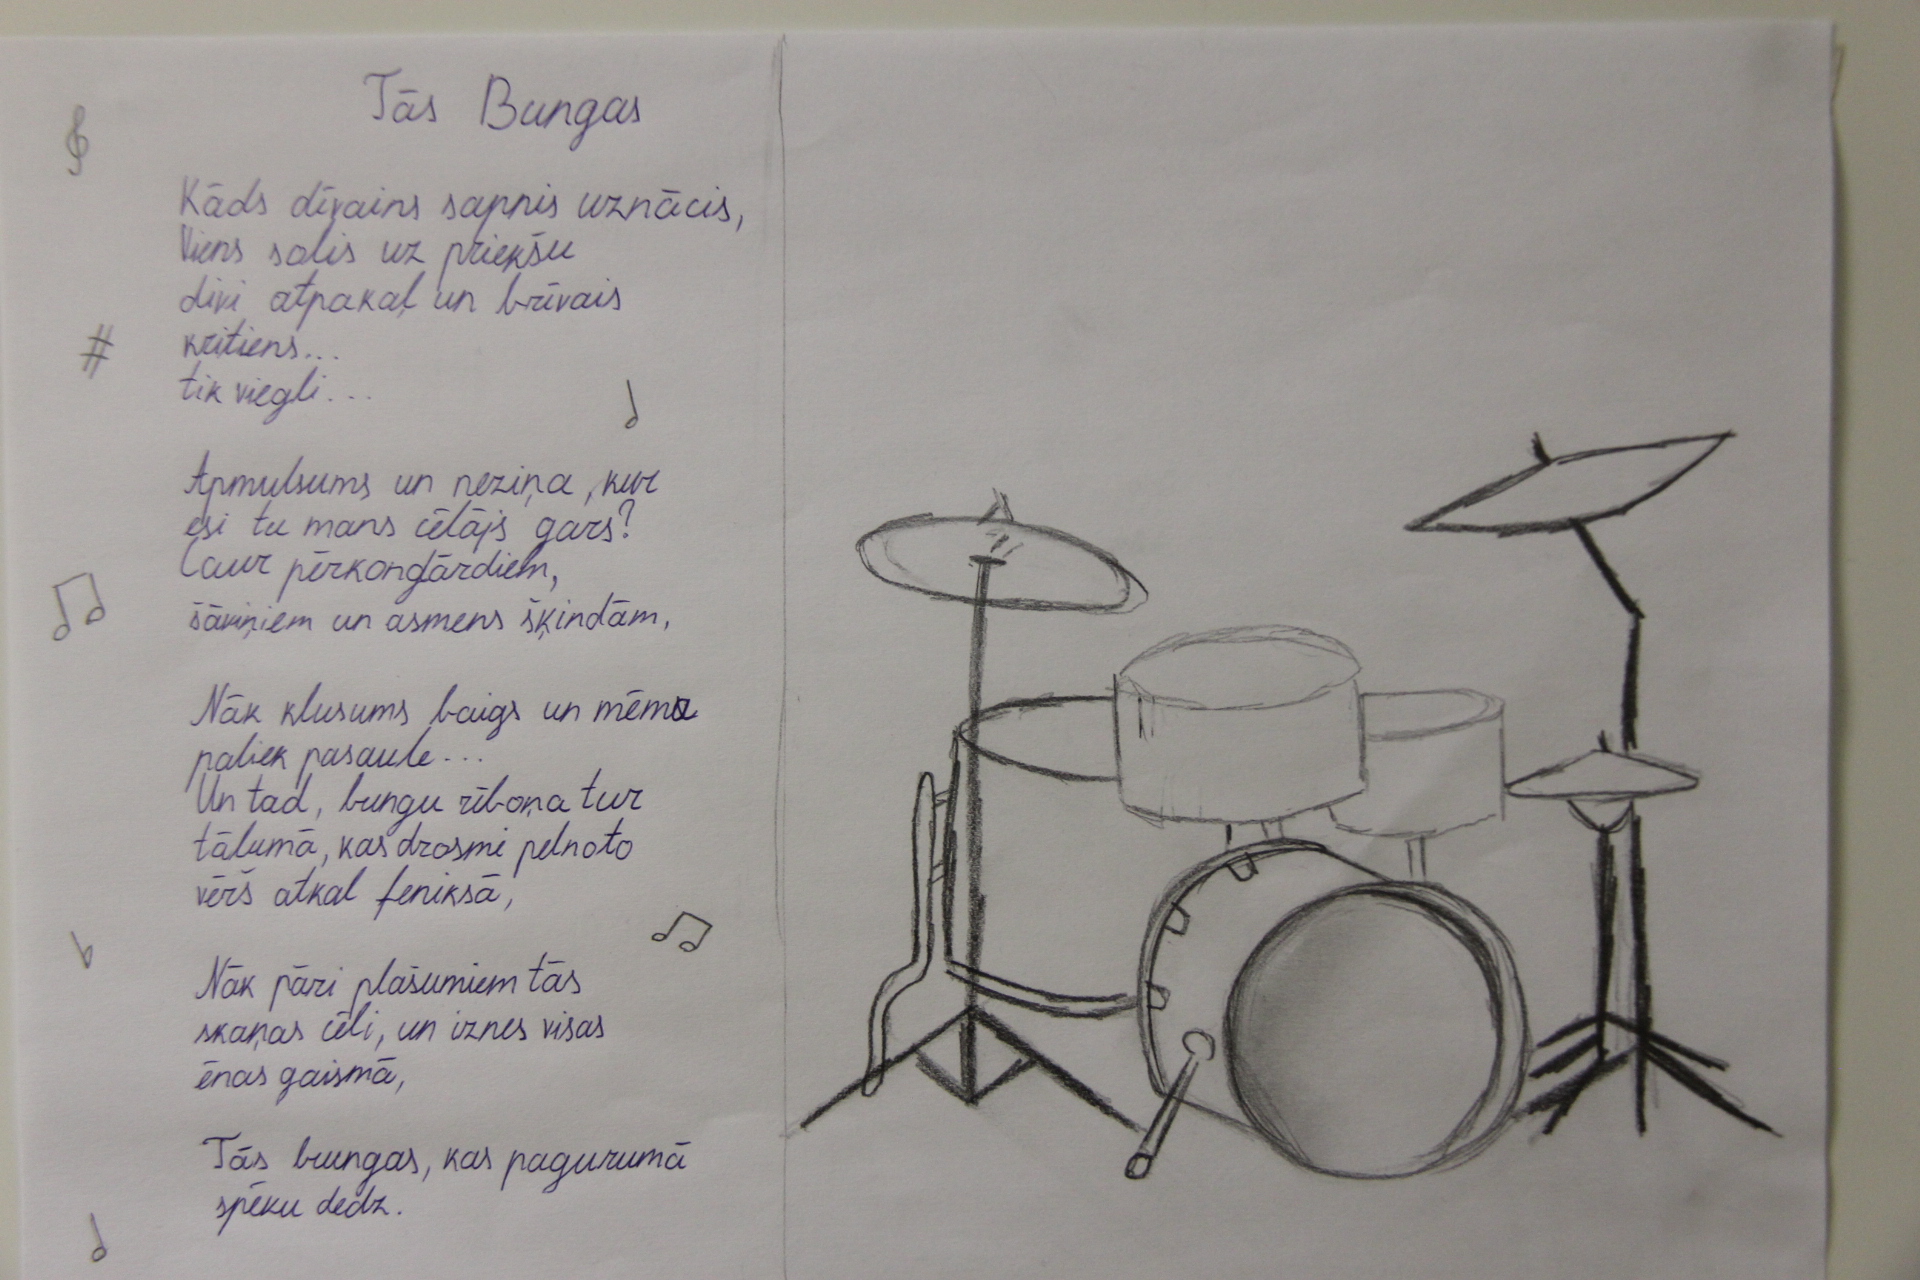 Tās Bungas
Kāds dīvains sapnis uznācis,
Viens solis uz priekšu
divi atpakaļ un brīvais
kritiens...
tik viegli...
Apmulsums un neziņa, kur
esi tu mans cēlājs gars?
Caur pērkongārdiem,
šāviņiem un asmens šķindām,
Nāk klusums baigs un mēma
paliek pasaule...
Un tad, bungu rīboņa tur
tālumā, kas drosmi pelnoto
vērš atkal feniksā,
Nāk pāri plašumiem tās
skaņas cēli, un iznes visas
ēnas gaismā,
Tās bungas, kas pagurumā
spēku dedz.